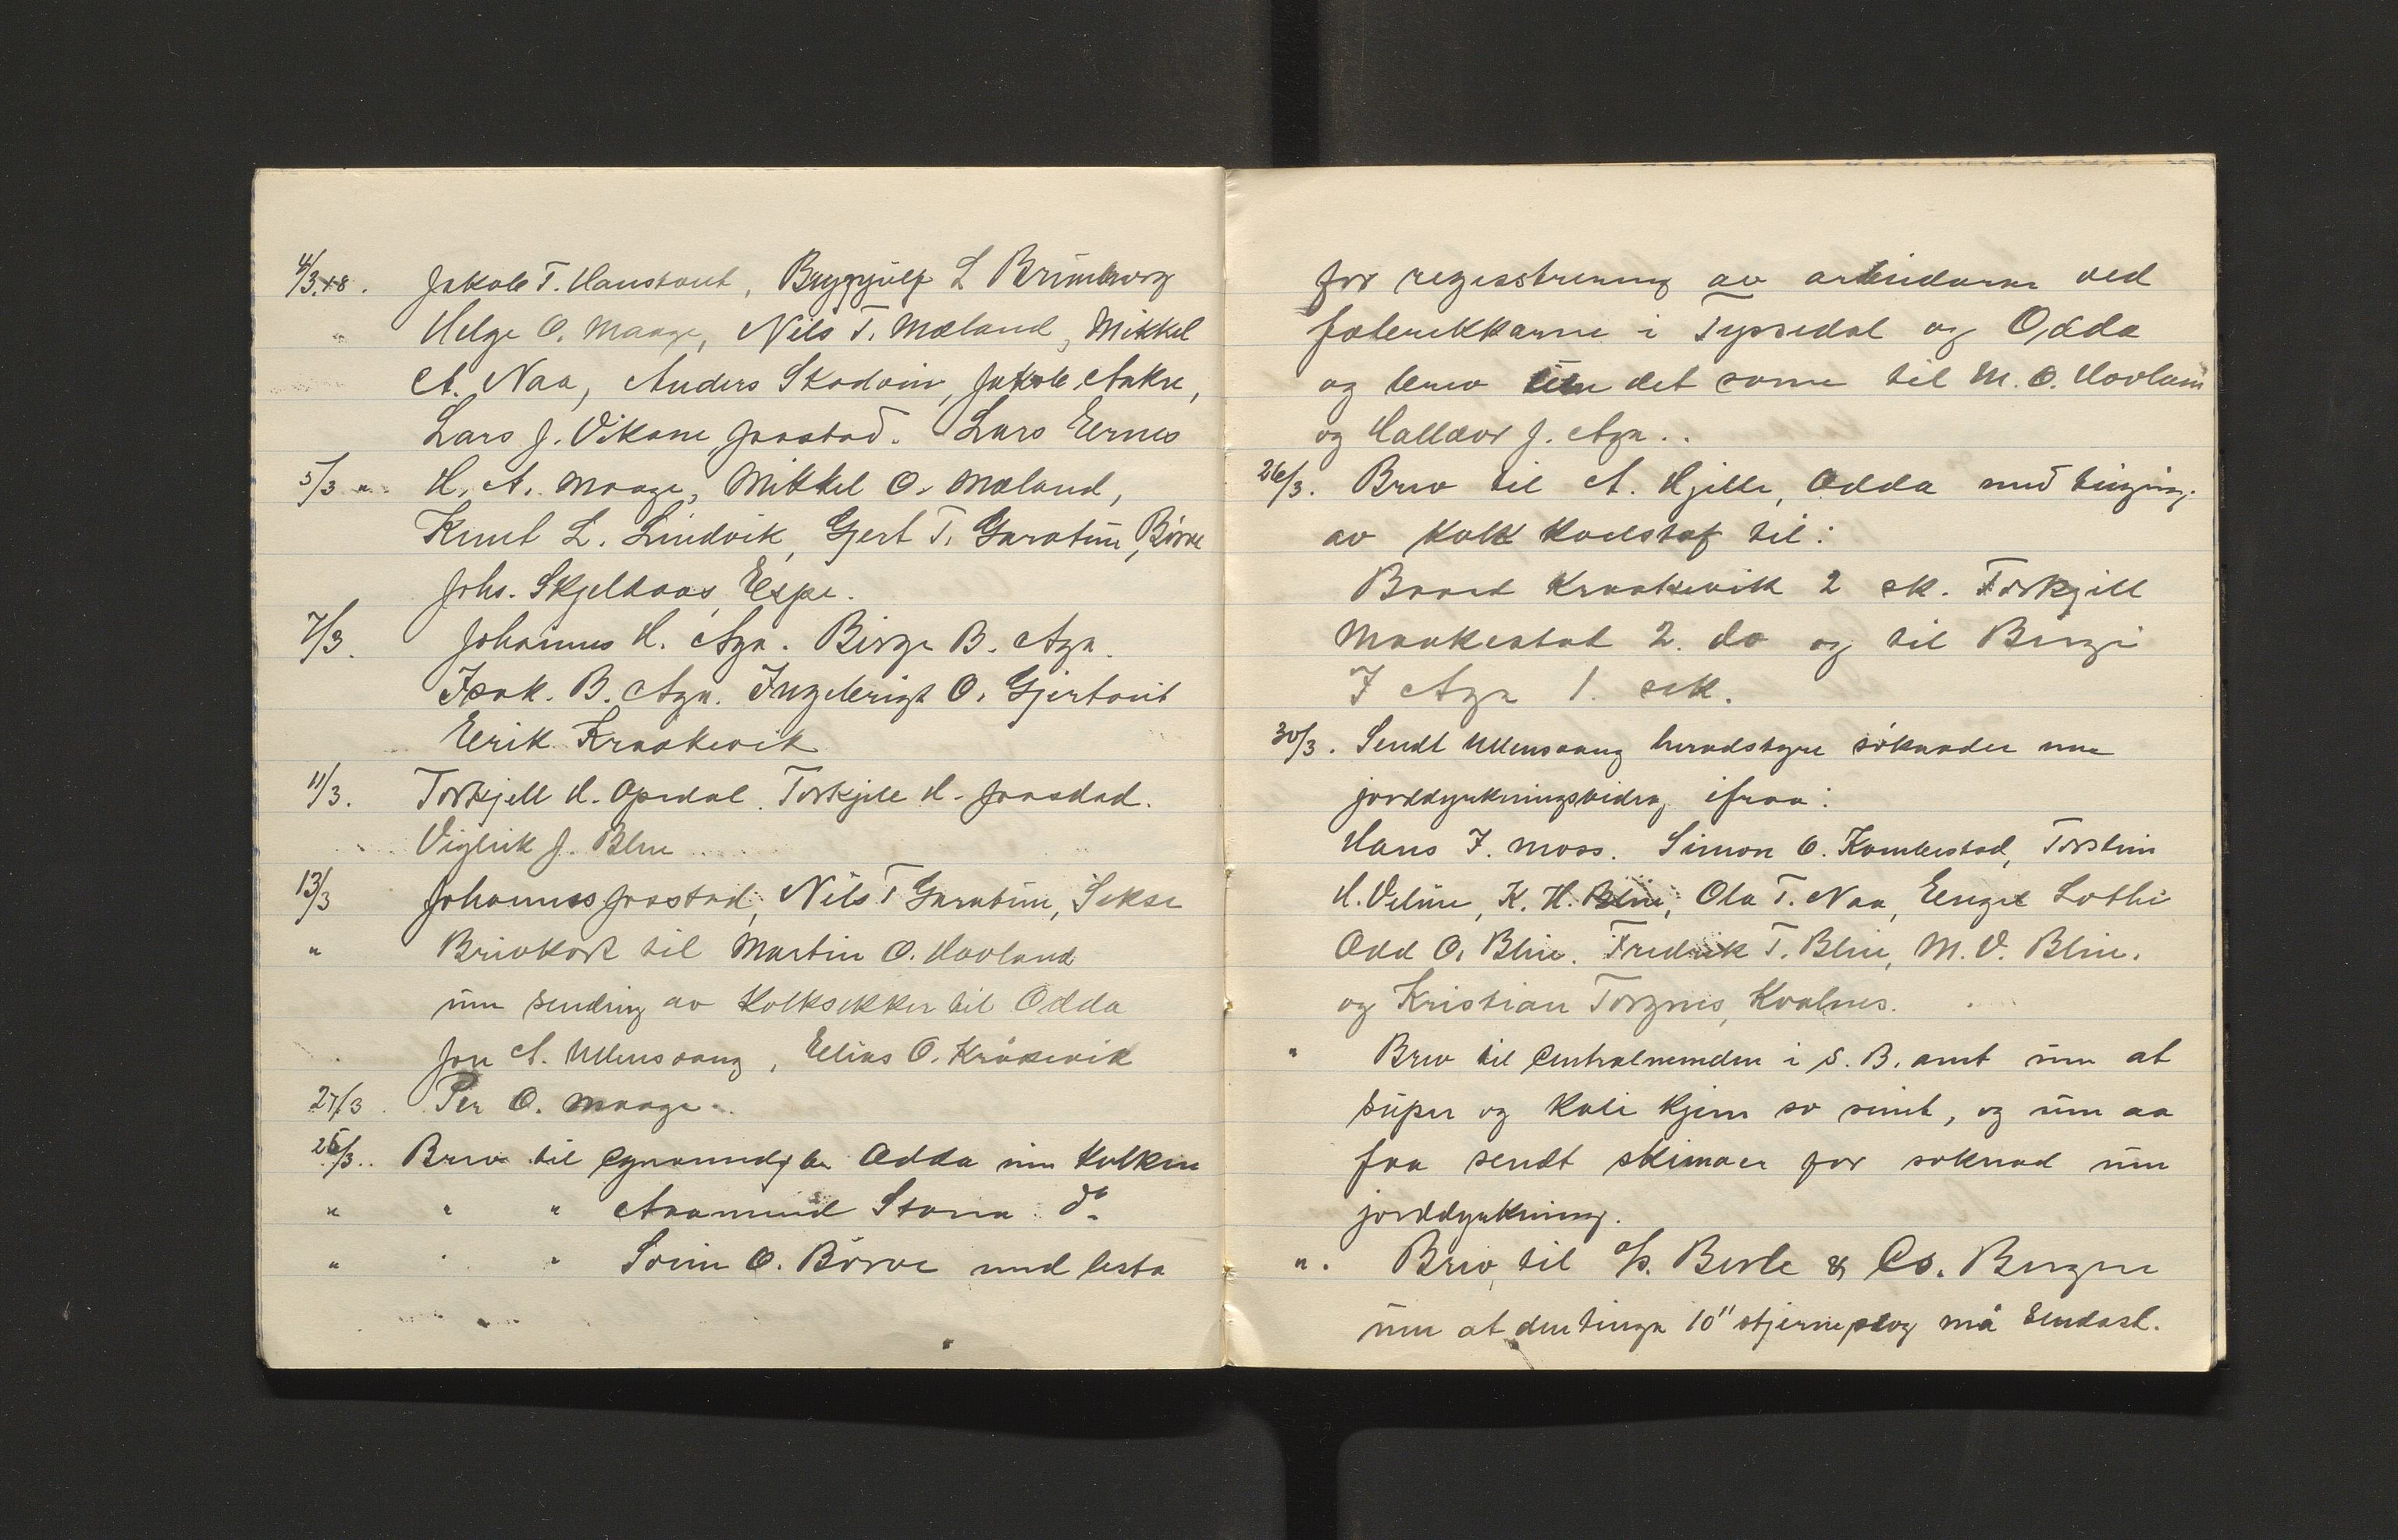 4/3.18. Jakob T. Haustveit, Bryngjulf L Brimborg
Helge O. Maage, Nils T. Mæland, Mikkel
A. Naa, Anders Skadvin, Jakob Aakre,
Lars J. Vikane Jaastad. Lars Ernes
5/3 " H. A. Maage, Mikkel O. Mæland,
Knut L. Lindvik, Gjert T. Garatun, Børve
Johs. Skjeldaas, Espe.
7/3. Johannes H. Aga. Birge B. Aga.
Isak. B. Aga. Ingebrigt O. Gjertveit
Eirik Kraakevik
11/3. Torkjell H. Opedal. Torkjell H. Jaasdad.
Viglik J. Blie
13/3 Johannes Jaastad, Nils T Garatun, Sekse
" Brivkort til Martin O. Hovland
um sending av Kalksekker til Odda
Jon A. Ullensvang, Elias O. Kråkevik
27/3. Per O. Maage.
25/3.. Brev til Odda um Kalken
" " " Aamund Stana do
" " " Svein O. Børve med lista
for regisstrering av arbeidarne ved
fabrikkarne i Tyssedal og Odda
og brev um det same til M. O. Hovland
og Halldor J. Aga..
26/3. Brev til A. Hjelle, Odda med tinging.
av Kalk til:
Baard Kraakevik 2 sk. Torkjell
Maakestad 2. do og til Birge
I Aga 1. sek.
30/3. Sendt Ullensvang heradstyre søknader um
jorddyrkningsbidrag ifraa:
Hans I. Moss. Simon O. Kambestad, Torstein
H. Velure, K. H. Blie, Ola T. Naa, Engel Lothe
Odd O. Blie. Fredrik T. Blie, M. V. Blie.
og Kristian Torgnes, Kvalnes.
" Brev til Centralnemden i S. B. amt um at
super og kali kjem so seint, og um aa
faa sendt skimaer for søknad um
jorddyrkning.
". Brev til A/s. Berle & Co. Bergen
um at den tinga 10" stjerneplog må sendast.